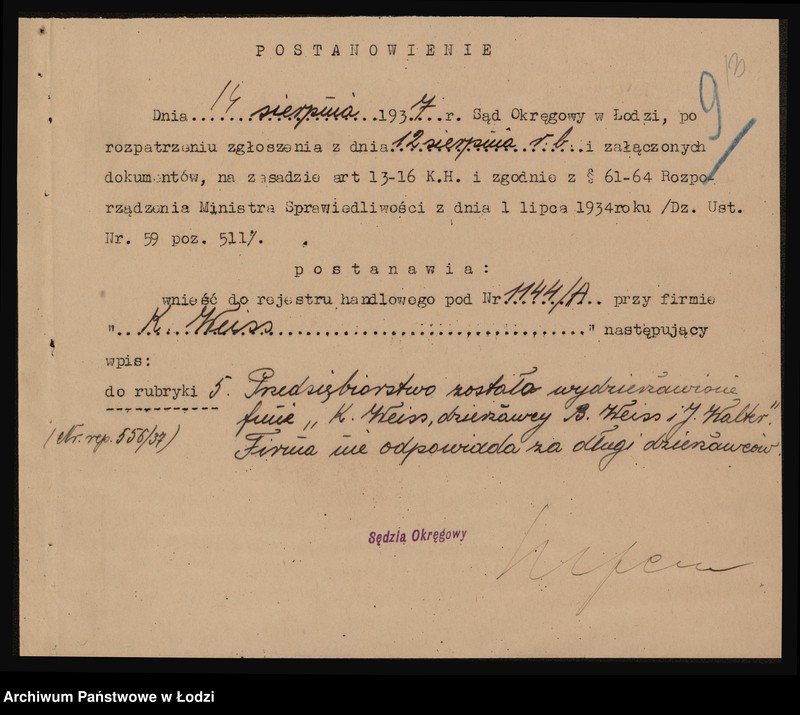 POSTANOWIENIE
9 13
Dnia 14 sierpnia 1937 r. Sąd Okręgowy w Łodzi, po
rozpatrzeniu zgłoszenia z dnia 12 sierpnia r.b. i załączonych
dokumentów, na zasadzie art 13-16 K.H. i zgodnie z § 61-64 Rozpo-
rządzenia Ministra Sprawiedliwości z dnia 1 lipca 1934roku /Dz. Ust.
Nr. 59 poz. 511/.
postanawia:
wnieść do rejestru handlowego pod Nr 1144/A przy firmie
"K. Weiss" następujący
wpis:
do rubryki 5. Przedsiębiorstwo zostało wydzierżawione
firmie „K. Weiss, dzierżawcy B. Weiss i J. Walter”.
(Nr. rep. 556/37) Firma nie odpowiada za długi dzierżawców.
Sędzia Okręgowy
Archiwum Państwowe w Łodzi